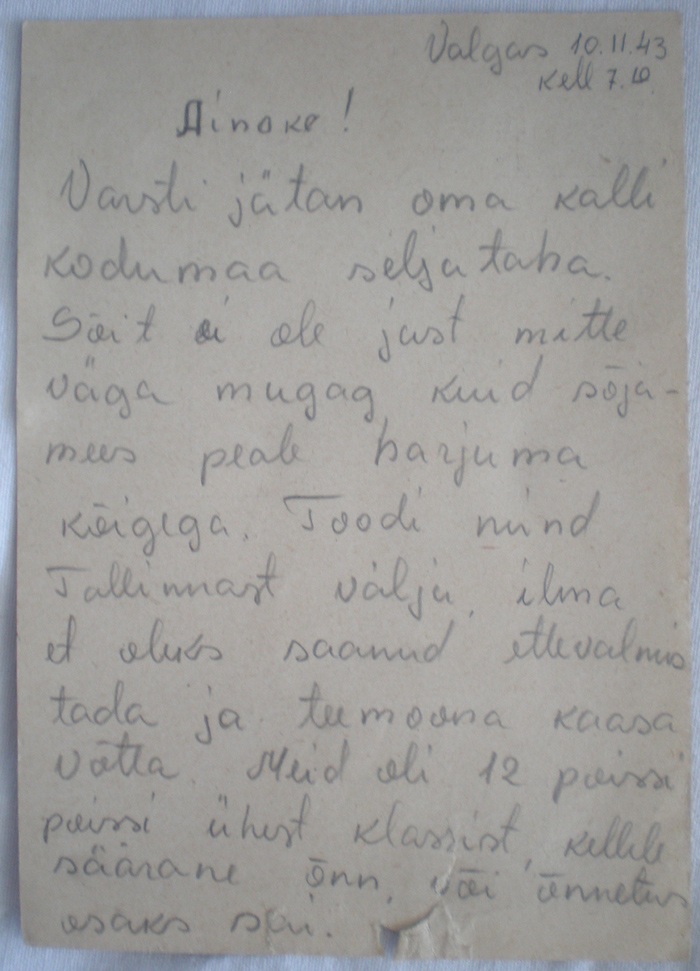 Valgas 10.11.43
Kell 7.10
Ainoke!
Varsti jätan oma kalli
kodumaa selja taha.
Sõit ei ole just mitte
väga mugag, kuid sõja-
mees peale harjuma
kõigega. Toodi niind
Tallinnast välja, ilma
et oleks saanud ettevalmis
tada ja teemoona kaasa
võtta. Meid oli 12 poissi
poissi ühest klassist, kellele
säärane õnn, või õnnetus
osaks sai.